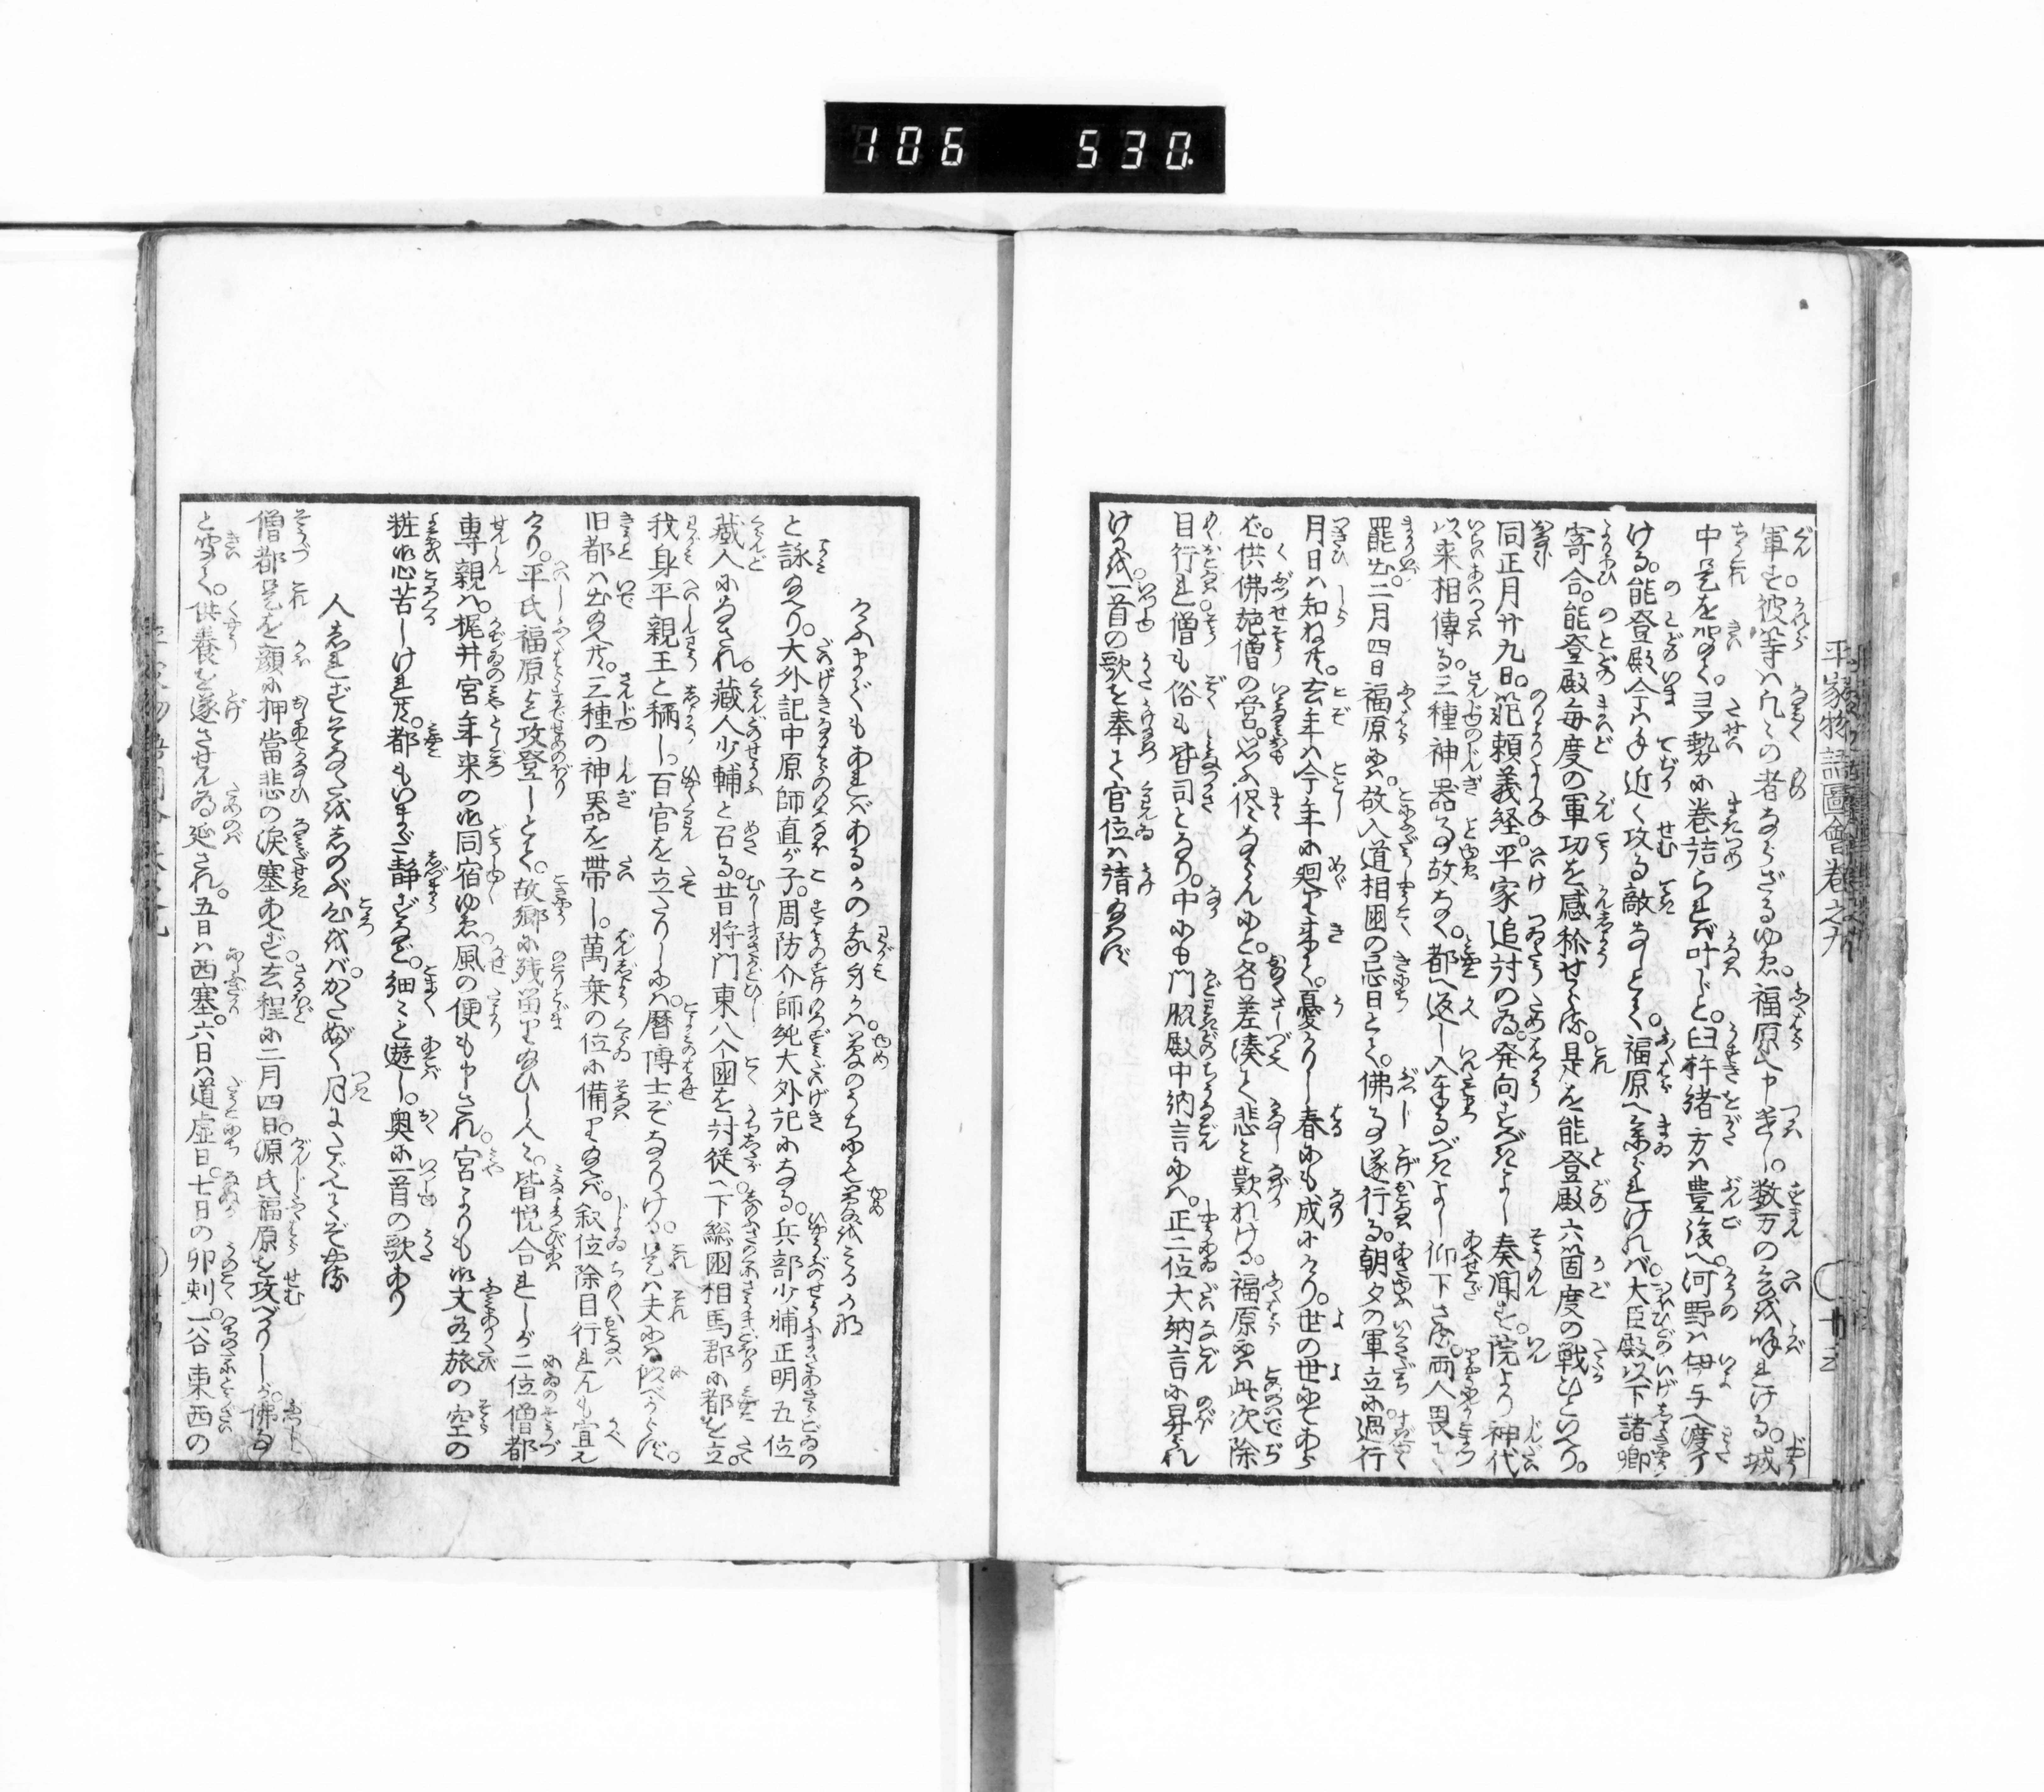 106 530
平家物語圖會巻之九
軍す。彼等は凡々の者ならざるゆゑ。福原へ申き〻し。数万の云々ける。城
中是を聞て。ヨタ勢に巻詰られば叶じと。臼杵緒方は豊後へ。河野は伊与へ渡り
ける。能登殿今は手近く攻る敵なしとて。福原へ参られければ。大臣殿以下諸卿
寄合。能登殿毎度の軍功を感称せらる。是を能登殿六箇度の戦ひといへり。
同正月廿九日。範頼義経。平家追討の為。発向すべきよし奏聞す。院より神代
以来相傳る。三種神器事故なく。都へ返し入奉るべきよし仰下さる。両人畏て
罷出。二月四日福原には。故入道相国の忌日とて。佛事遂行る。朝夕の軍立に過行
月日は知ねども。去年は今年に廻り来て。憂かりし春にも成にけり。世の世にてあら
ば。供佛施僧の営。思ふ侭ならんにと。各差湊て悲み歎れける。福原には此次除
目行れ僧も俗も皆司となり。中にも門脇殿中納言には。正二位大納言に昇られ
けるを。一首の歌を奉て官位は請給はず
けふまでもあればあるかの我身かは。夢のうちにも夢をみるかな
と詠給へり。大外記中原師直が子。周防介師純大外記になる。兵部少輔正明五位
蔵人になされ。蔵人少輔と召る。昔将門東八个国を討従へ下総国相馬郡に都を立。
我身平親王と称し。百官を立たりしには。暦博士ぞなかりける。是は夫には似べからず。
旧都は出給へ共。三種の神器を帯し。萬乗の位に備り給へば。叙位除目行れんも宜え
けり。平氏福原迄攻登しとて。故郷に残留り給ひし人々。皆悦合れしが二位僧都
専親は。梶井宮年来の御同宿ゆゑ風の便も申され。宮よりも御文有旅の空の
粧御心苦しけれ共。都もいまだ静ならずと。細々と遊し。奥に一首の歌あり
人しれずそなたをしのぶ心をば。かたぶく月にたぐへてぞやる
僧都是を顔に押當悲の涙塞あへず。去程に二月四日。源氏福原を攻べかりしが。佛事
と聞て。供養を遂させん為延され。五日は西塞。六日は道虚日。七日の卯剋。一谷東西の